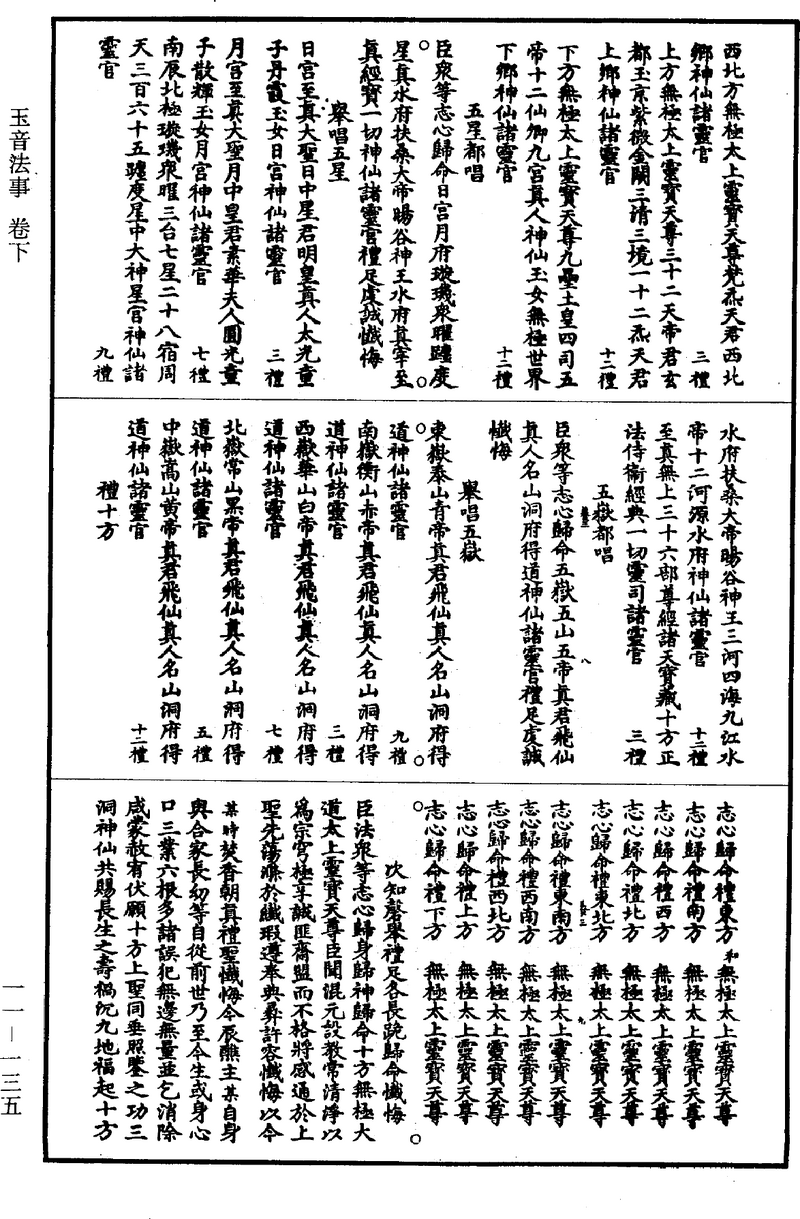 玉音法事　卷下
一一—一三五
西北方無極太上靈寶天尊梵炁天君西北
鄉神仙諸靈官　三禮
上方無極太上靈寶天尊三十二天帝君玄
都玉京紫微金闕三清三境一十二炁天君
上鄉神仙諸靈官　十二禮
下方無極太上靈寶天尊九壘土皇四司五
帝十二仙卿九宮真人神仙玉女無極世界
下鄉神仙諸靈官　十二禮
五星都唱
臣眾等志心歸命日宮月府璇璣眾曜躔度
星真水府扶桑大帝暘谷神王水府真宰至
真經寶一切神仙諸靈官禮足虔誠懺悔
舉唱五星
日宮至真大聖日中星君明皇真人太光童
子丹霞玉女日宮神仙諸靈官　三禮
月宮至真大聖月中皇君素華夫人圓光童
子散輝玉女月宮神仙諸靈官　七禮
南辰北極璇璣眾曜三台七星二十八宿周
天三百六十五躔度星中大神星官神仙諸
靈官　九禮
水府扶桑大帝暘谷神王三河四海九江水
帝十二河源水府神仙諸靈官　十二禮
至真無上三十六部尊經諸天寶藏十方正
法侍衛經典一切靈司諸靈官　三禮
五嶽都唱
臣眾等志心歸命五嶽五山五帝真君飛仙
真人名山洞府得道神仙諸靈官禮足虔誠
懺悔
舉唱五嶽
東嶽泰山青帝真君飛仙真人名山洞府得
道神仙諸靈官　九禮
南嶽衡山赤帝真君飛仙真人名山洞府得
道神仙諸靈官　三禮
西嶽華山白帝真君飛仙真人名山洞府得
道神仙諸靈官　七禮
北嶽常山黑帝真君飛仙真人名山洞府得
道神仙諸靈官　五禮
中嶽嵩山黃帝真君飛仙真人名山洞府得
道神仙諸靈官　十二禮
禮十方
志心歸命禮東方　和無極太上靈寶天尊
志心歸命禮南方　無極太上靈寶天尊
志心歸命禮西方　無極太上靈寶天尊
志心歸命禮北方　無極太上靈寶天尊
志心歸命禮東北方　無極太上靈寶天尊
志心歸命禮東南方　無極太上靈寶天尊
志心歸命禮西南方　無極太上靈寶天尊
志心歸命禮西北方　無極太上靈寶天尊
志心歸命禮上方　無極太上靈寶天尊
志心歸命禮下方　無極太上靈寶天尊
次知磬舉禮足各長跪歸命懺悔
臣法眾等志心歸身歸神歸命十方無極大
道太上靈寶天尊臣聞混元設教常清淨以
為宗穹極享誠匪齋盟而不格將感通於上
聖先蕩滌於纖瑕遵奉典彝許容懺悔以今
某時焚香朝真禮聖懺悔今辰醮主某自身
與合家長幼等自從前世乃至今生或身心
口三業六根多諸誤犯無邊無量並乞消除
咸蒙赦宥伏願十方上聖同垂照鑒之功三
洞神仙共賜長生之壽禍沉九地福起十方